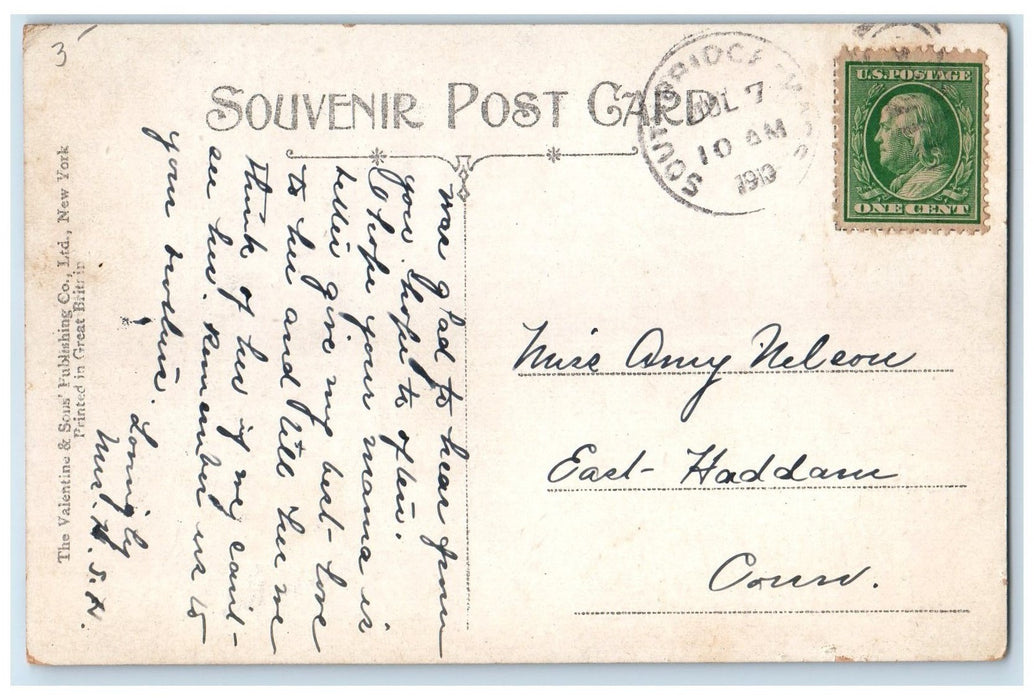 3
SOUVENIR POST CARD
SOUTHBRIDGE MASS
JUL 7
10 AM
1913
U.S. POSTAGE
ONE CENT
Miss Amy Nelson
East Haddam
Conn.
was glad to hear from
you. hope to often.
hope your mama is
better give my best love
to her and tell her we
think of her if we cant
see her. remember us to
your brother.
Lovingly
Mrs. H. S. H.
The Valentine & Sons' Publishing Co., Ltd., New York
Printed in Great Britain